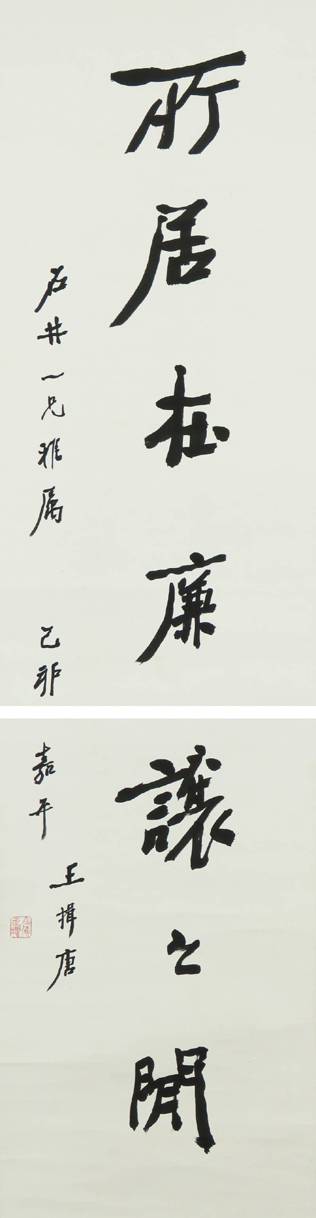 所居在廉讓之閒
石井一兄雅属 己卯嘉平 王揖唐